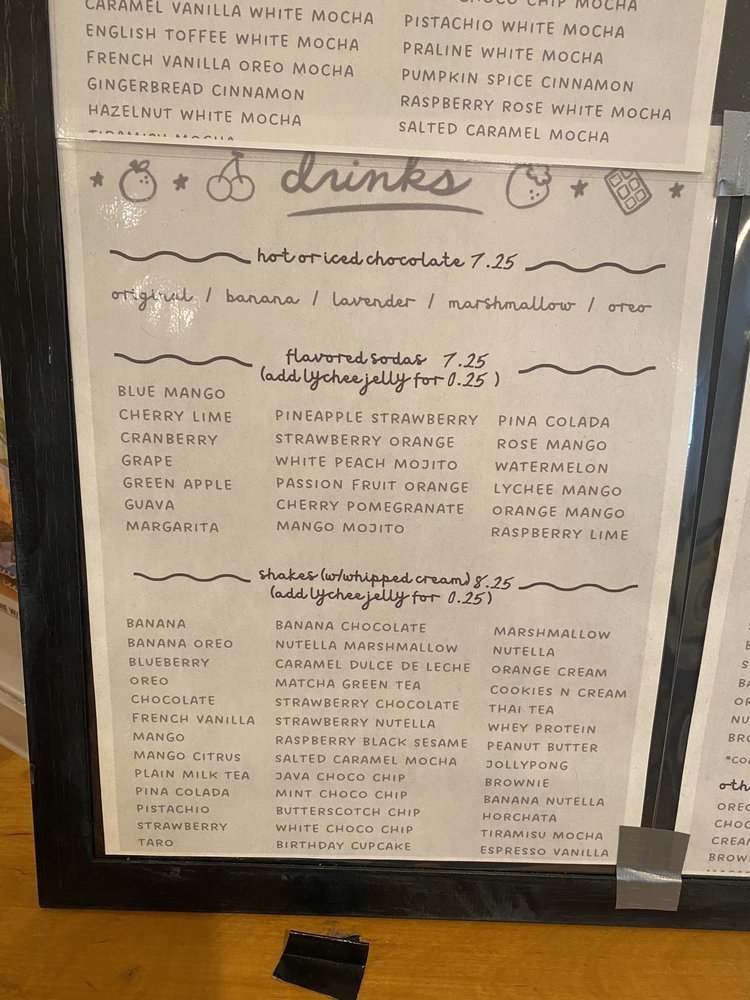 CARAMEL VANILLA WHITE MOCHA
ENGLISH TOFFEE WHITE MOCHA
FRENCH VANILLA OREO MOCHA
GINGERBREAD CINNAMON
HAZELNUT WHITE MOCHA
TIRAMISU MOCHA
CHOCO CHIP MOCHA
PISTACHIO WHITE MOCHA
PRALINE WHITE MOCHA
PUMPKIN SPICE CINNAMON
RASPBERRY ROSE WHITE MOCHA
SALTED CARAMEL MOCHA
drinks
hot or iced chocolate 7.25
original / banana / lavender / marshmallow / oreo
flavored sodas 7.25
(add lychee jelly for 0.25 )
BLUE MANGO
CHERRY LIME
CRANBERRY
GRAPE
GREEN APPLE
GUAVA
MARGARITA
PINEAPPLE STRAWBERRY
STRAWBERRY ORANGE
WHITE PEACH MOJITO
PASSION FRUIT ORANGE
CHERRY POMEGRANATE
MANGO MOJITO
PINA COLADA
ROSE MANGO
WATERMELON
LYCHEE MANGO
ORANGE MANGO
RASPBERRY LIME
shakes (w/whipped cream) 8.25
(add lychee jelly for 0.25)
BANANA
BANANA OREO
BLUEBERRY
OREO
CHOCOLATE
FRENCH VANILLA
MANGO
MANGO CITRUS
PLAIN MILK TEA
PINA COLADA
PISTACHIO
STRAWBERRY
TARO
BANANA CHOCOLATE
NUTELLA MARSHMALLOW
CARAMEL DULCE DE LECHE
MATCHA GREEN TEA
STRAWBERRY CHOCOLATE
STRAWBERRY NUTELLA
RASPBERRY BLACK SESAME
SALTED CARAMEL MOCHA
JAVA CHOCO CHIP
MINT CHOCO CHIP
BUTTERSCOTCH CHIP
WHITE CHOCO CHIP
BIRTHDAY CUPCAKE
MARSHMALLOW
NUTELLA
ORANGE CREAM
COOKIES N CREAM
THAI TEA
WHEY PROTEIN
PEANUT BUTTER
JOLLYPONG
BROWNIE
BANANA NUTELLA
HORCHATA
TIRAMISU MOCHA
ESPRESSO VANILLA